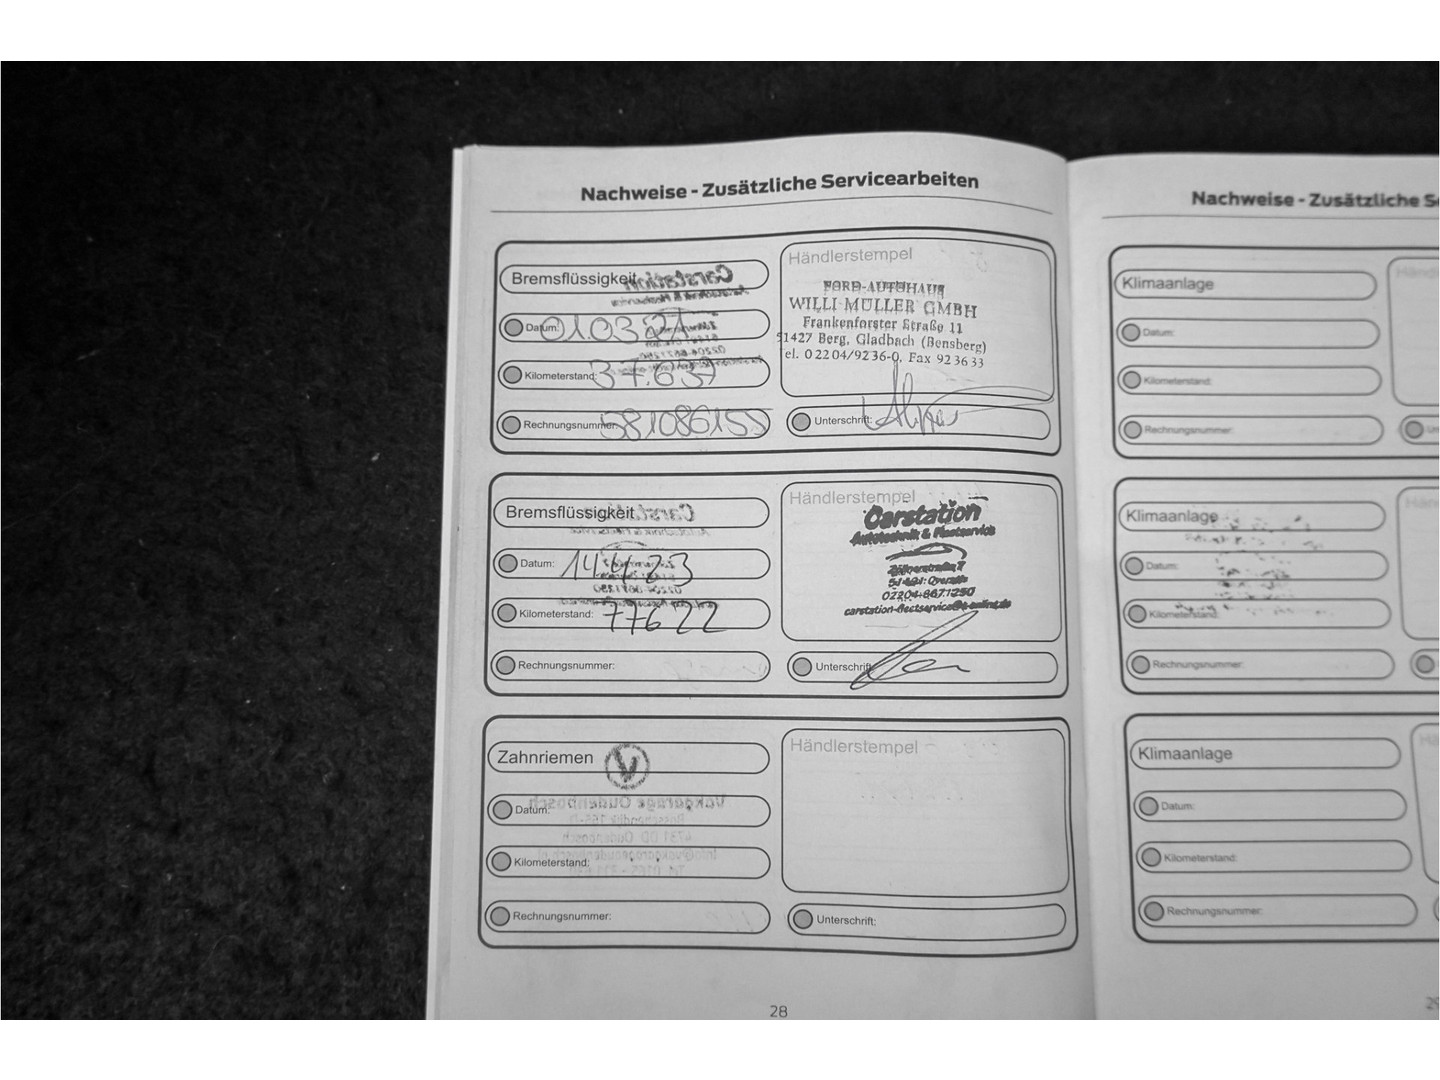 Nachweise - Zusätzliche Servicearbeiten
Bremsflüssigkeit
Datum: 01.03.21
Kilometerstand: 37.637
Rechnungsnummer:
Händlerstempel
FORD-AUTOHAUS
WILLI MÜLLER GMBH
Frankenforster Straße 11
51427 Berg. Gladbach (Bensberg)
Tel. 02204/9236-0, Fax 923633
Unterschrift:
Bremsflüssigkeit
Datum: 14.4.23
Kilometerstand: 77622
Rechnungsnummer:
Händlerstempel
Carstation
Autotechnik & Fleetservice
51491 Overath
02204-8671250
Unterschrift:
Zahnriemen
V
Datum:
Kilometerstand:
Rechnungsnummer:
Vakgarage Oudenbosch
Händlerstempel
Unterschrift:
28
Nachweise - Zusätzliche Se
Klimaanlage
Datum:
Kilometerstand:
Rechnungsnummer:
Händ
Un
Klimaanlage
Datum:
Kilometerstand:
Rechnungsnummer:
Hän
Klimaanlage
Datum:
Kilometerstand:
Rechnungsnummer:
Hä
29